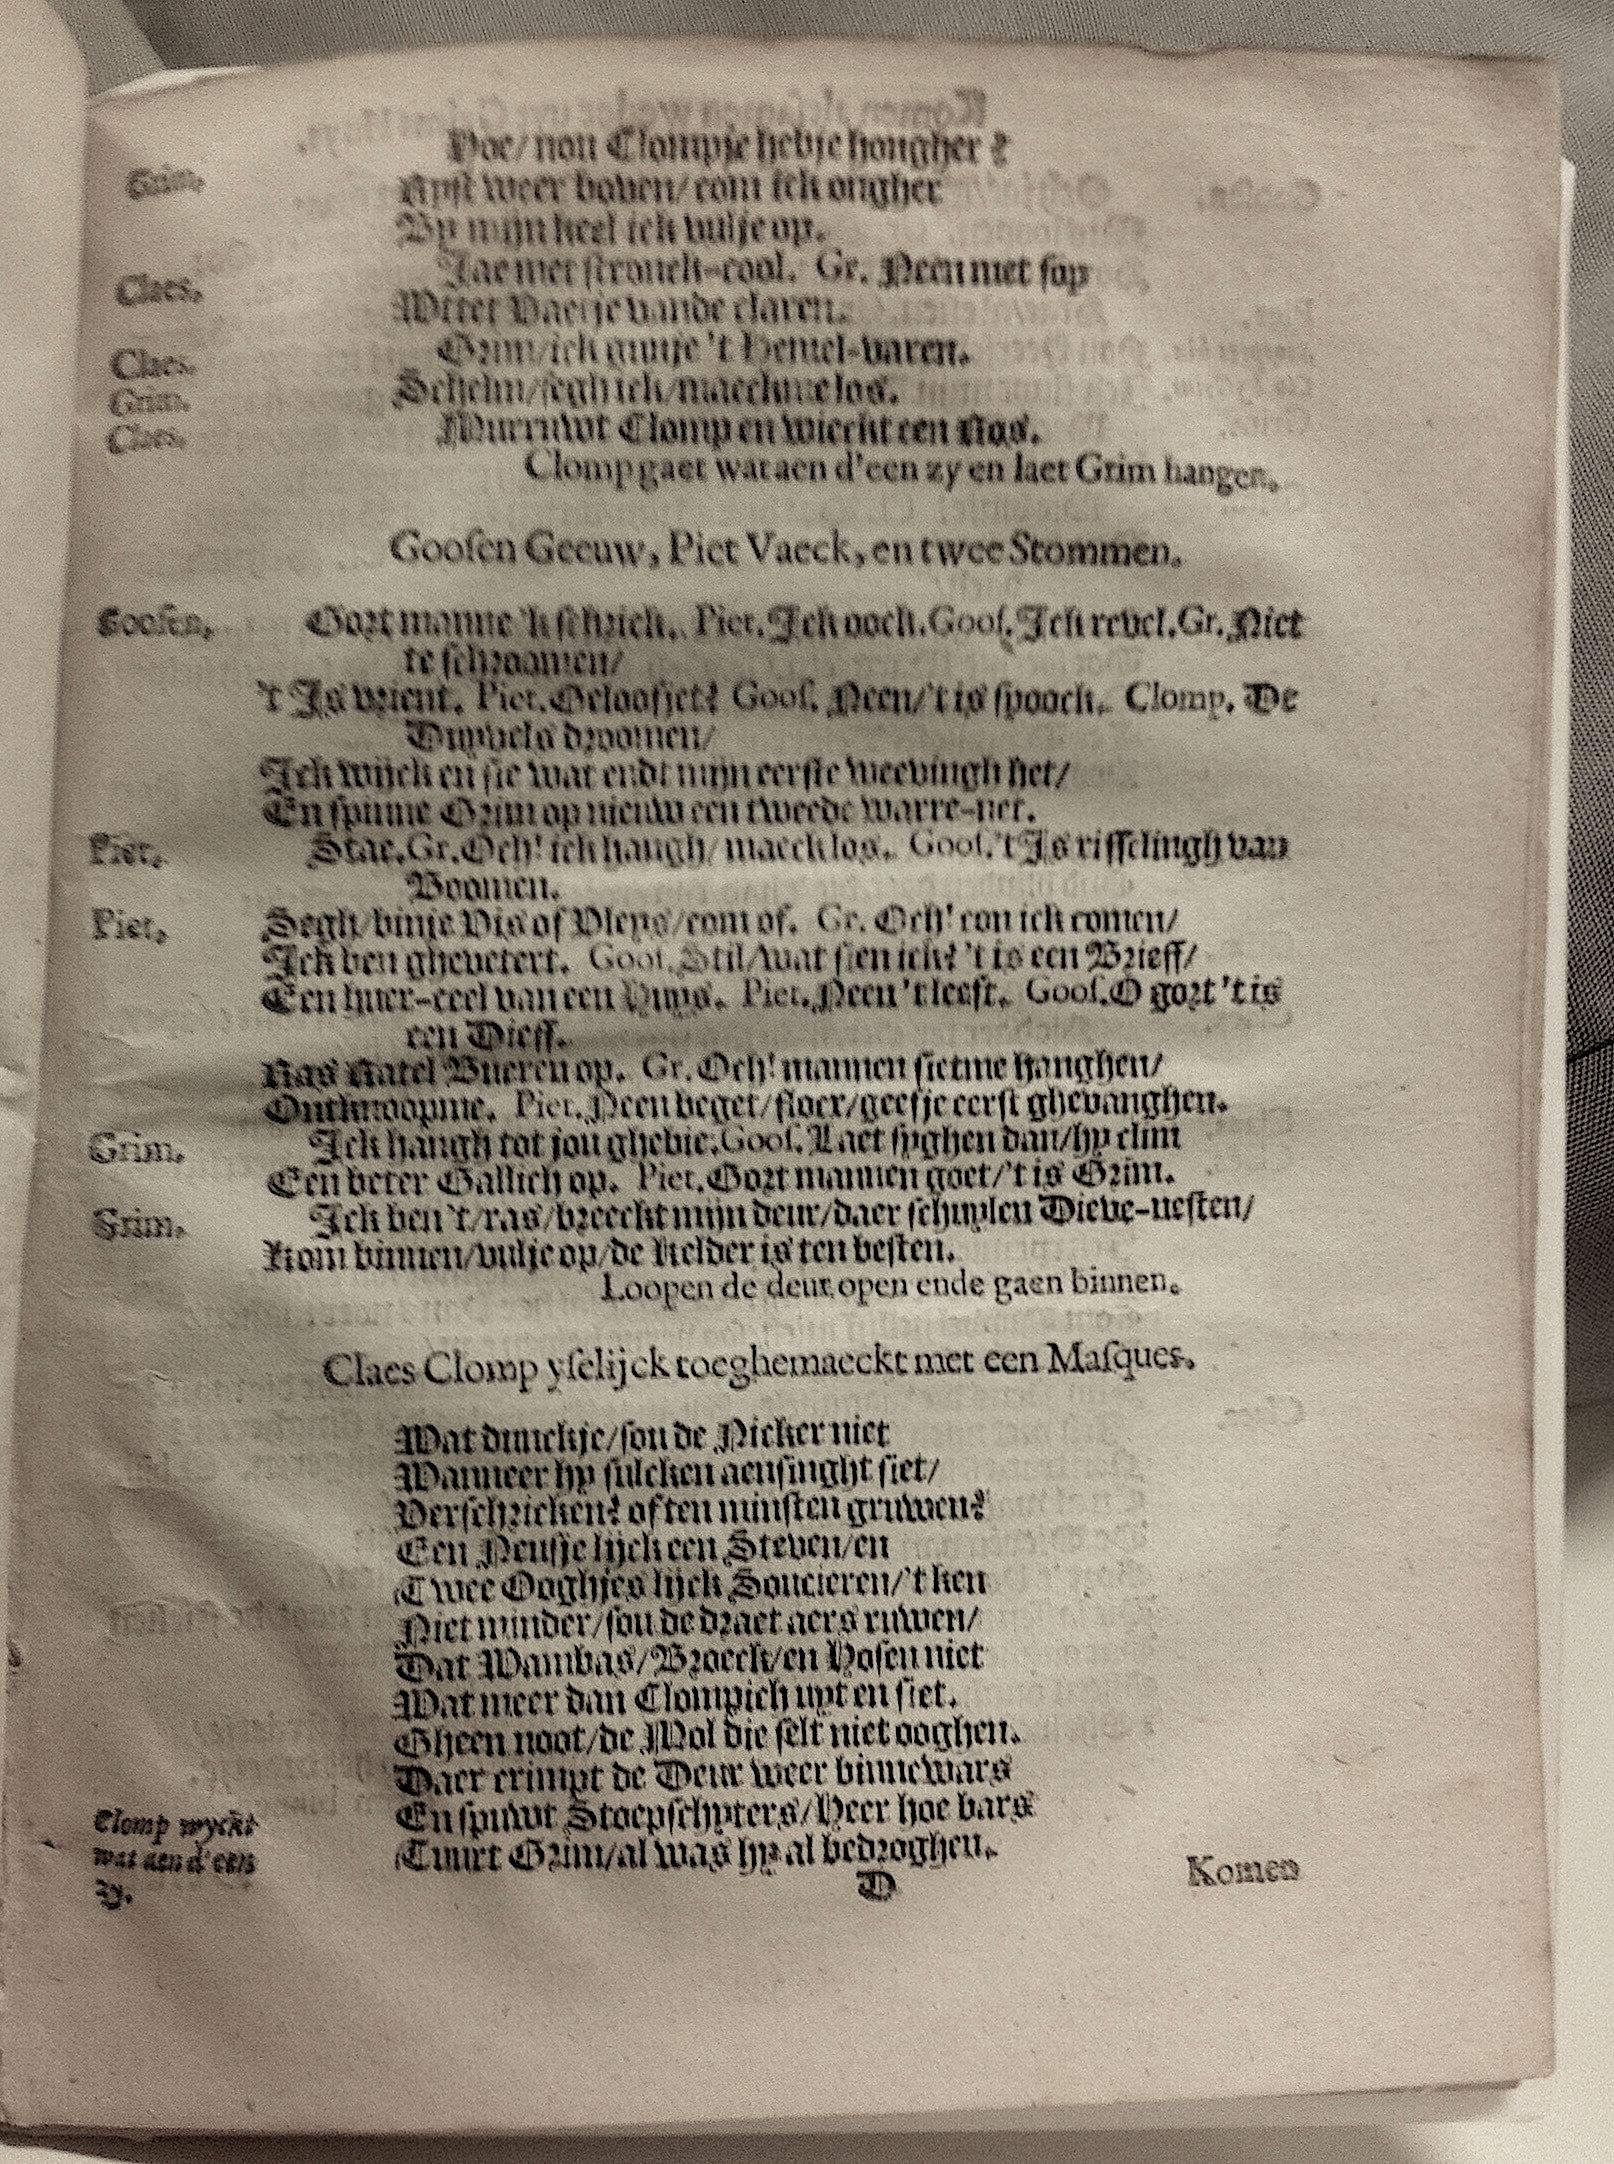 Hoe/ nou Clompje hebje hongher?
Grim. Apst weer boven/ com ick ongher
By mijn keel ick vulje op.
Claes. Jae met stronck-cool. Gr. Neen met sop
Wtret Vaetje vande claren.
Claes. Grim/ ick gunje 't Hemel-varen.
Grim. Schelm/ segh ick/ maeckme los.
Claes. Murruwt Clomp en wierht een Ros.
Clomp gaet wat aen d'een zy en laet Grim hangen.
Goosen Geeuw, Piet Vaeck, en twee Stommen.
Goosen. Gort manne 'k schrick. Piet. Ick oock. Goos. Ick revel. Gr. Niet
te schroomen/
't Is vrient. Piet. Geloofjet? Goos. Neen/ 't is spoock. Clomp. De
Duyvels droomen/
Ick wijck en sie wat endt mijn eerste weevingh het/
En spinne Grim op nieuw een tweede warre-net.
Piet. Stae. Gr. Och! ick hangh/ maeck los. Goos. 't Is risselingh van
Boomen.
Piet. Segh/ binje Vis of Vleys/ com of. Gr. Och! con ick comen/
Ick ben ghevetert. Goos. Stil/ wat sien ick? 't is een Brieff/
Een huer-ceel van een Huys. Piet. Neen 't leest. Goos. O gort 't is
een Dieff.
Ras Ratel Bueren op. Gr. Och! mannen sietme hanghen/
Ontknoopme. Piet. Neen beget/ floer/ geefje eerst ghevanghen.
Grim. Ick hangh tot jou ghebie. Goos. Laet syghen dan/ hy clim
Een beter Gallich op. Piet. Gort mannen goet/ 't is Grim.
Grim. Ick ben 't/ ras/ breeckt mijn deur/ daer schuylen Dieve-nesten/
Kom binnen/ vulje op/ de Kelder is ten besten.
Loopen de deur open ende gaen binnen.
Claes Clomp yselijck toeghemaeckt met een Masques.
Wat dunckje/ sou de Nicker niet
Wanneer hy sulcken aensinght siet/
Verschricken? of ten minsten gruwen?
Een Neusje lijck een Steven/ en
Twee Ooghjes lijck Soucieren/ 't ken
Niet minder/ sou de draet aers ruwen/
Dat Wambas/ Broeck/ en Hosen niet
Wat meer dan Clompich uyt en siet.
Gheen noot/ de Mol die selt niet ooghen.
Daer crimpt de Deur weer binnewars
En spuwt Stoepschyters/ Heer hoe bars
Tuurt Grim/ al was hy al bedroghen.
Clomp wyckt
wat aen d'een
zy.
D
Komen